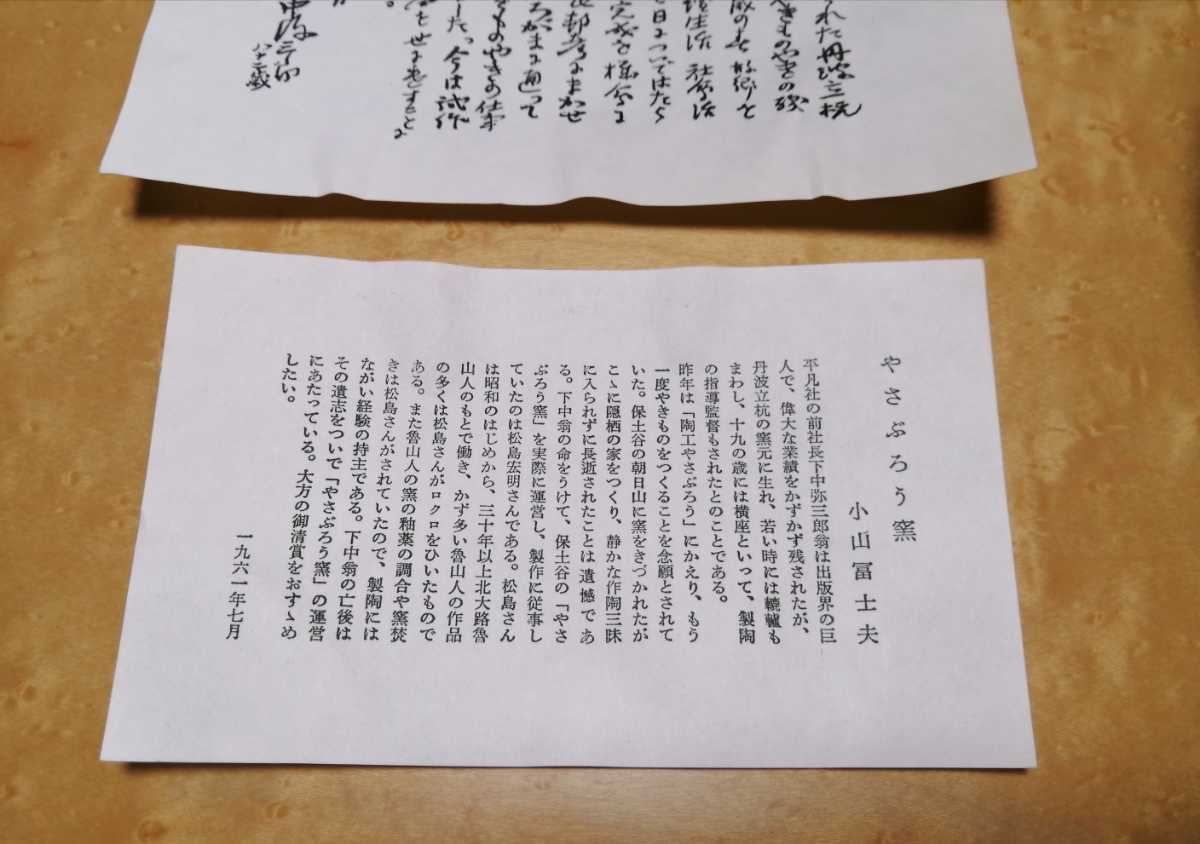 れた丹波立杭
やきものやきの
と
生活 社会活
日 はたら
完成を
まかせ
がまに通って
ものやきの仕事
した。今は試作
を世に
八十二歳
やさぶろう窯
小山冨士夫
平凡社の前社長下中弥三郎翁は出版界の巨
人で、偉大な業績をかずかず残されたが、
丹波立杭の窯元に生れ、若い時には轆轤も
まわし、十九の歳には横座といって、製陶
の指導監督もされたとのことである。
昨年は「陶工やさぶろう」にかえり、もう
一度やきものをつくることを念願とされて
いた。保土谷の朝日山に窯をきづかれたが
こゝに隠栖の家をつくり、静かな作陶三昧
に入られずに長逝されたことは遺憾であ
る。下中翁の命をうけて、保土谷の「やさ
ぶろう窯」を実際に運営し、製作に従事し
ていたのは松島宏明さんである。松島さん
は昭和のはじめから、三十年以上北大路魯
山人のもとで働き、かず多い魯山人の作品
の多くは松島さんがロクロをひいたもので
ある。また魯山人の窯の釉薬の調合や窯焚
きは松島さんがされていたので、製陶には
ながい経験の持主である。下中翁の亡後は
その遺志をついで「やさぶろう窯」の運営
にあたっている。大方の御清賞をおすゝめ
したい。
一九六一年七月